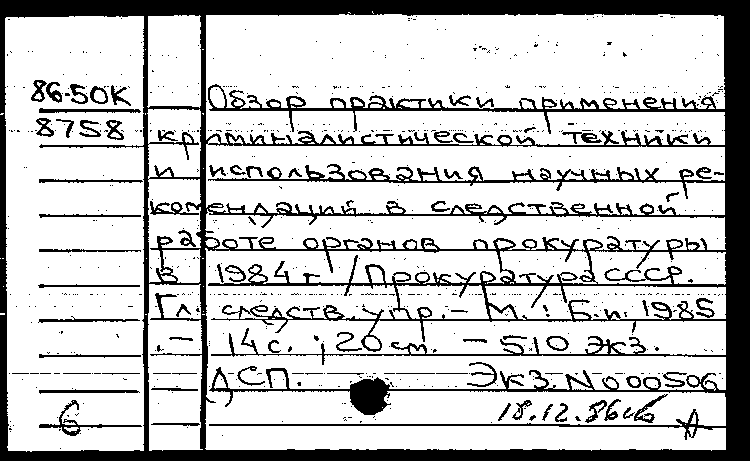 86-50К Обзор практики применения
8758 криминалистической техники
и использования научных ре-
комендаций в следственной
работе органов прокуратуры
в 1984 г / Прокуратура СССР.
Гл. следств. упр. – М. : Б.и., 1985
. – 14 с. ; 20 см. – 510 экз.
ДСП. Экз. N 000506
6 18.12.86